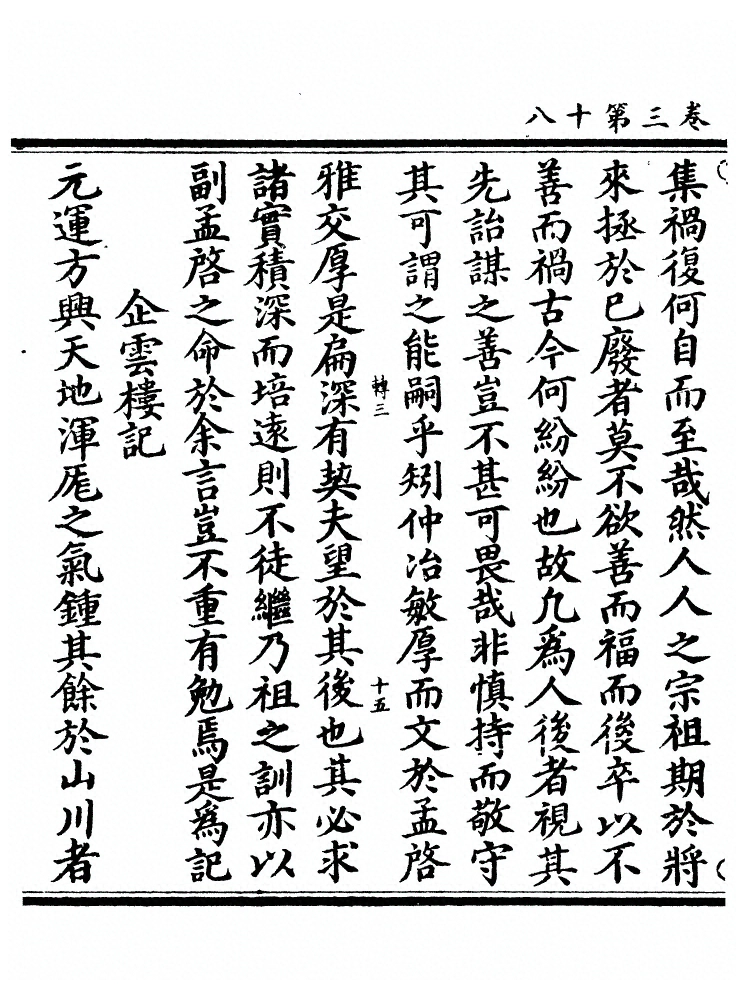 卷三第十八
集禍復何自而至哉然人人之宗祖期於將
來拯於已廢者莫不欲善而福而後卒以不
善而禍古今何紛紛也故凢為人後者視其
先詒謀之善豈不甚可畏哉非慎持而敬守
其可謂之能嗣乎矧仲冶敏厚而文於孟啓
轉三 十五
雅交厚是扁深有契夫望於其後也其必求
諸實積深而培遠則不徒繼乃祖之訓亦以
副孟啓之命於余言豈不重有勉焉是為記
企雲樓記
元運方興天地渾厖之氣鍾其餘於山川者